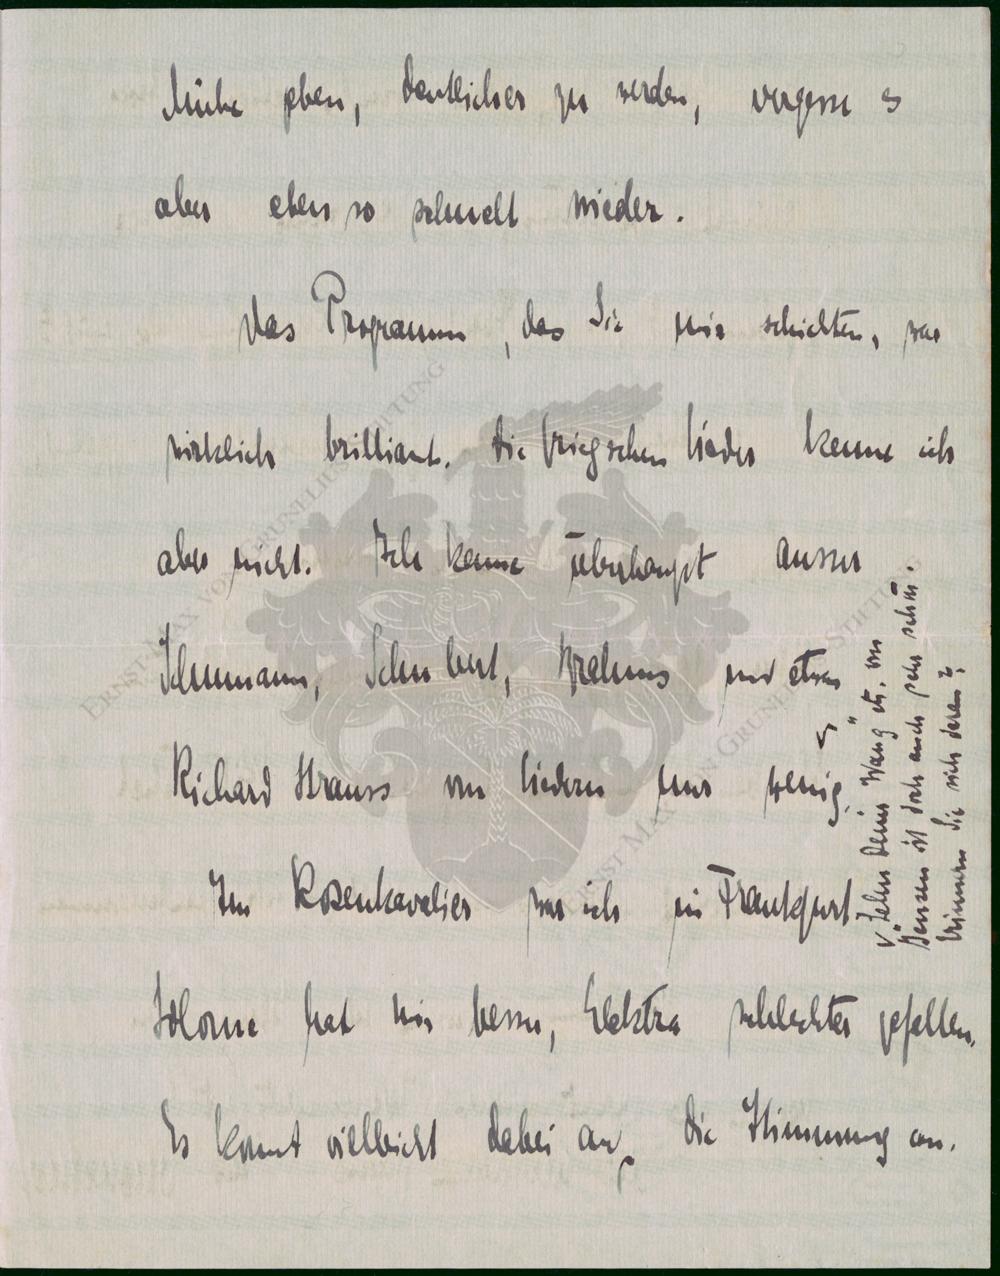 Mühe geben, deutlicher zu werden, vergesse es
aber eben so schnell wieder.
Das Programm, das Sie mir schickten, war
wirklich brilliant. Die Griegschen Lieder kenne ich
aber nicht. Ich kenne überhaupt ausser
Schumann, Schubert, Brahms und etwas
Richard Strauss von Liedern nur wenig.
Im Rosenkavalier war ich in Frankfurt.
Salome hat mir besser, Elektra schlechter gefallen.
Es kommt vielleicht dabei auf die Stimmung an.
"Lehn Deine Wang" etc. von
Jensen ist doch auch sehr schön.
Erinnern Sie sich daran?
ERNST MAX VON GRUNELIUS STIFTUNG
ERNST MAX VON GRUNELIUS STIFTUNG